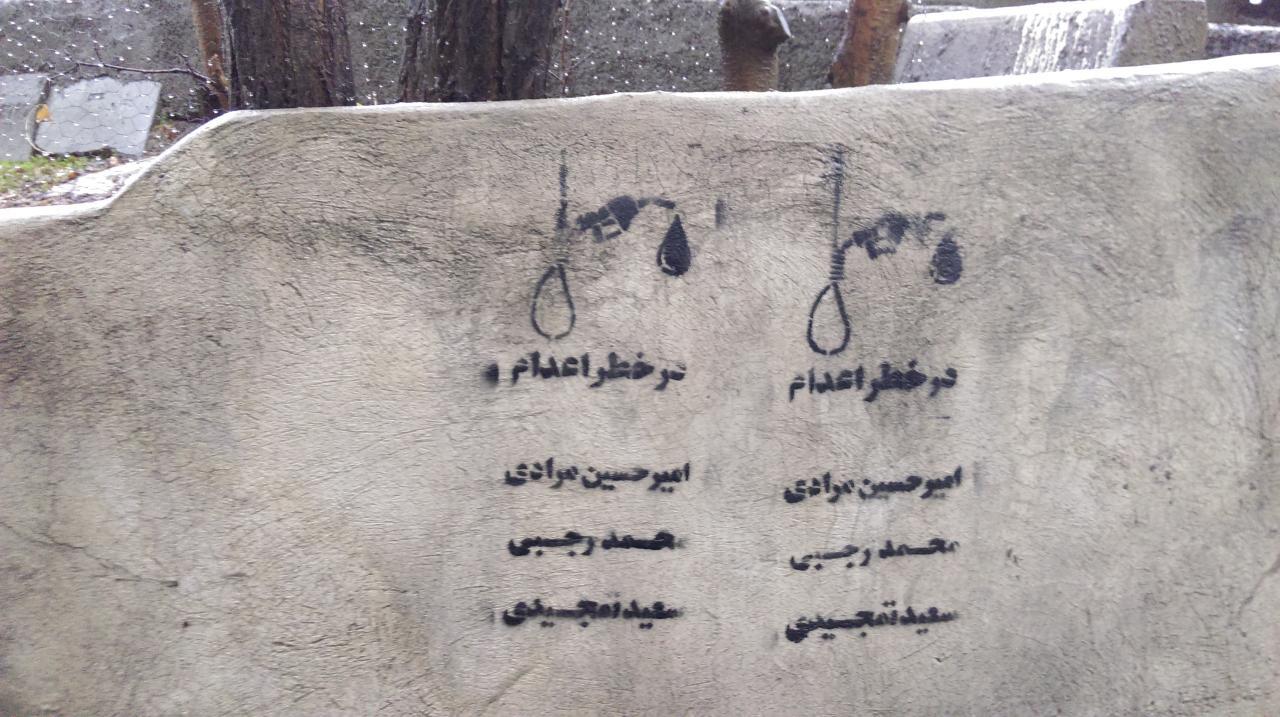 در خطر اعدام
امیرحسین مرادی
محمد رجبی
سعید تمجیدی
در خطر اعدام
امیرحسین مرادی
محمد رجبی
سعید تمجیدی